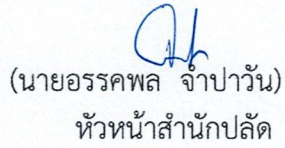 (นายอรรคพล จำปาวัน)
หัวหน้าสำนักปลัด